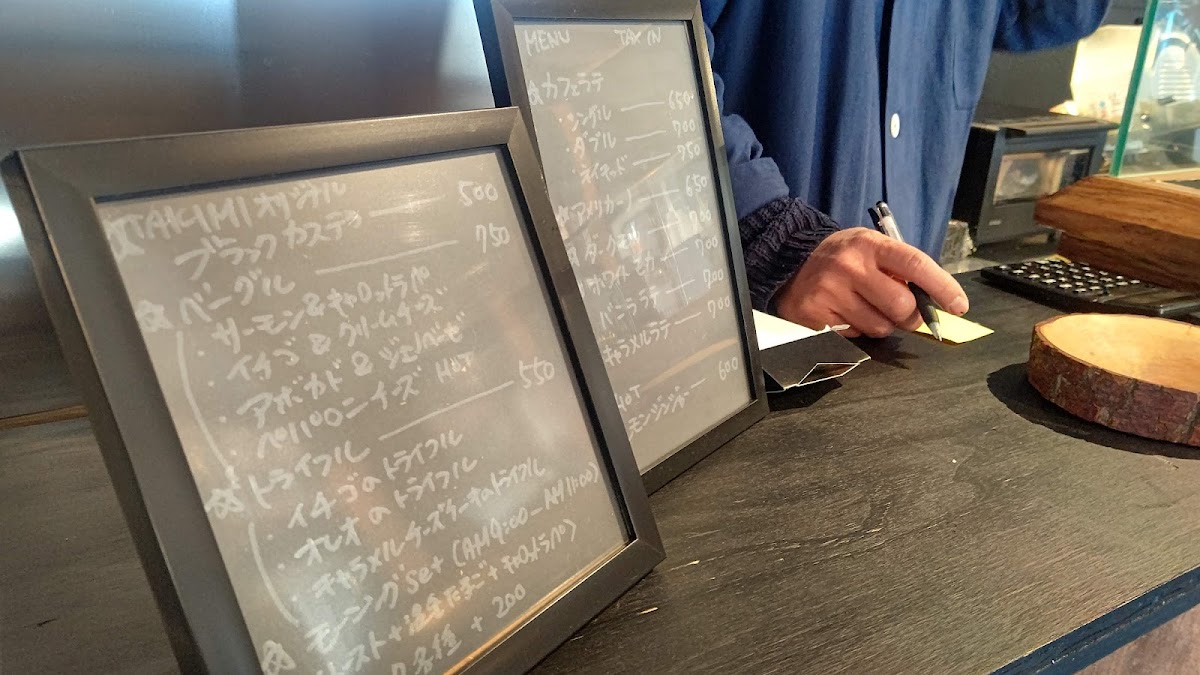 ☆TAKIMIオリジナル
ブラックカステラ 500
☆ベーグル 750
・サーモン&キャロットラペ
・イチゴ&クリームチーズ
・アボカド&ジェノベーゼ
・ペパロニチーズ HOT
☆トライフル 550
・イチゴのトライフル
・オレオのトライフル
・キャラメルチーズケーキのトライフル
☆モーニングset (AM9:00-AM11:00)
トースト+温泉たまご+キャロットラペ)
各種 + 200
MENU TAX IN
☆カフェラテ
・シングル 650
・ダブル 700
・テイキッド 750
☆アメリカーノ 650
☆ダークモカ 700
ホワイトモカ 700
バニララテ 700
キャラメルラテ 700
HOT
レモンジンジャー 600